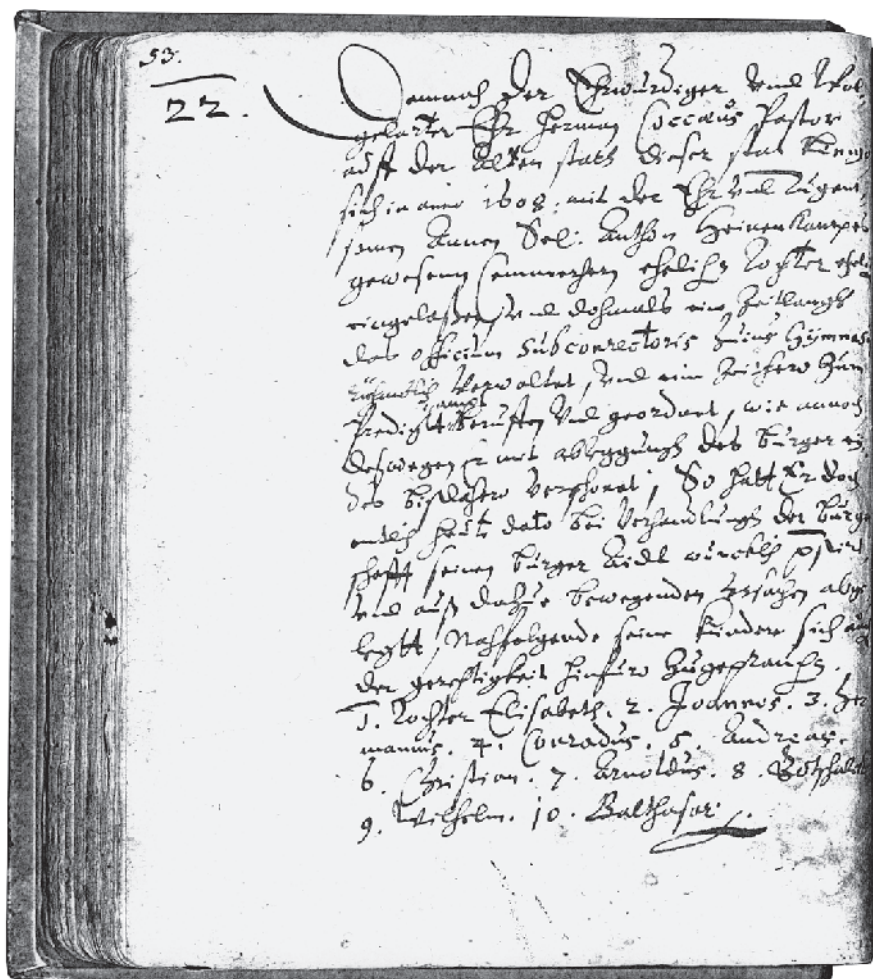 53.
22.
Demnach der Ehrwürdiger Vnd Wol
gelarter Ehr Herman Coccæus Pastor
auff der Alten statt dieser stat Lemgo
sich in anno 1608. mit der Ehr vnd Tugent
samen Annen Sel: Anthon Heinenkampes
gewesenen Cemmerhern ehelicher Tochter ehelich
eingelaßen, vnd dohmals ein Zeitlangk
das officium Subconrectoris huius Gymnasi
rühmlich Verwaltet, vnd ein Zeithero Zum
Predigtampt beruffen Vnd geordnet, wie annoch
deßwegen Er mit ablegungh des bürger ei
des bißdahero verschonet; So hatt Er doch
entlich heute dato bei Verhandlungh der bürger
schafft seinen bürger Aidt würcklich
vnd auß dazue bewegenden Vrsachen abge
legtt, Nachfolgende seine Kinder sich auch
der gerechtigkeit hinfüro Zugeprauchen.
1. Tochter Elisabeth. 2. Joannes. 3. Her
mannus. 4. Conradus. 5. Andreas.
6. Christian. 7. Arnoldus. 8. Gotschalck
9. Wilhelm. 10. Balthasar.